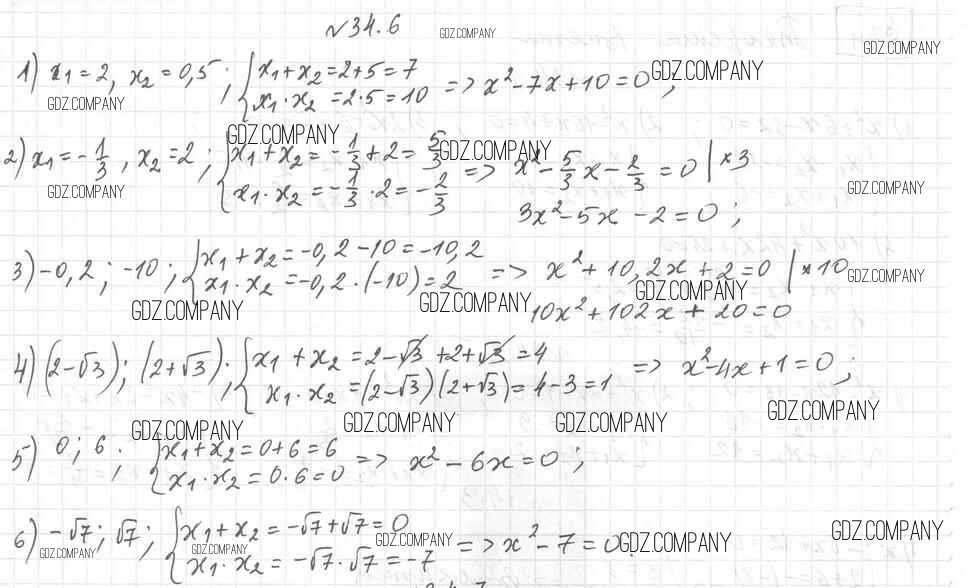 №34.6
GDZ.COMPANY
GDZ.COMPANY
1) x₁=2, x₂=0,5; { x₁+x₂=2+5=7
x₁·x₂=2·5=10 => x²-7x+10=0;
GDZ.COMPANY
GDZ.COMPANY
GDZ.COMPANY
2) x₁=-1/3, x₂=2; { x₁+x₂=-1/3+2=5/3
x₁·x₂=-1/3·2=-2/3 => x²-5/3x-2/3=0 |×3
GDZ.COMPANY
GDZ.COMPANY
GDZ.COMPANY
3x²-5x-2=0;
3) -0,2; -10; { x₁+x₂=-0,2-10=-10,2
x₁·x₂=-0,2·(-10)=2 => x²+10,2x+2=0 |×10
GDZ.COMPANY
GDZ.COMPANY
GDZ.COMPANY
GDZ.COMPANY
10x²+102x+20=0
4) (2-√3); (2+√3); { x₁+x₂=2-√3+2+√3=4
x₁·x₂=(2-√3)(2+√3)=4-3=1 => x²-4x+1=0;
GDZ.COMPANY
GDZ.COMPANY
GDZ.COMPANY
GDZ.COMPANY
5) 0; 6; { x₁+x₂=0+6=6
x₁·x₂=0·6=0 => x²-6x=0;
6) -√7; √7; { x₁+x₂=-√7+√7=0
x₁·x₂=-√7·√7=-7 => x²-7=0
GDZ.COMPANY
GDZ.COMPANY
GDZ.COMPANY
GDZ.COMPANY
GDZ.COMPANY